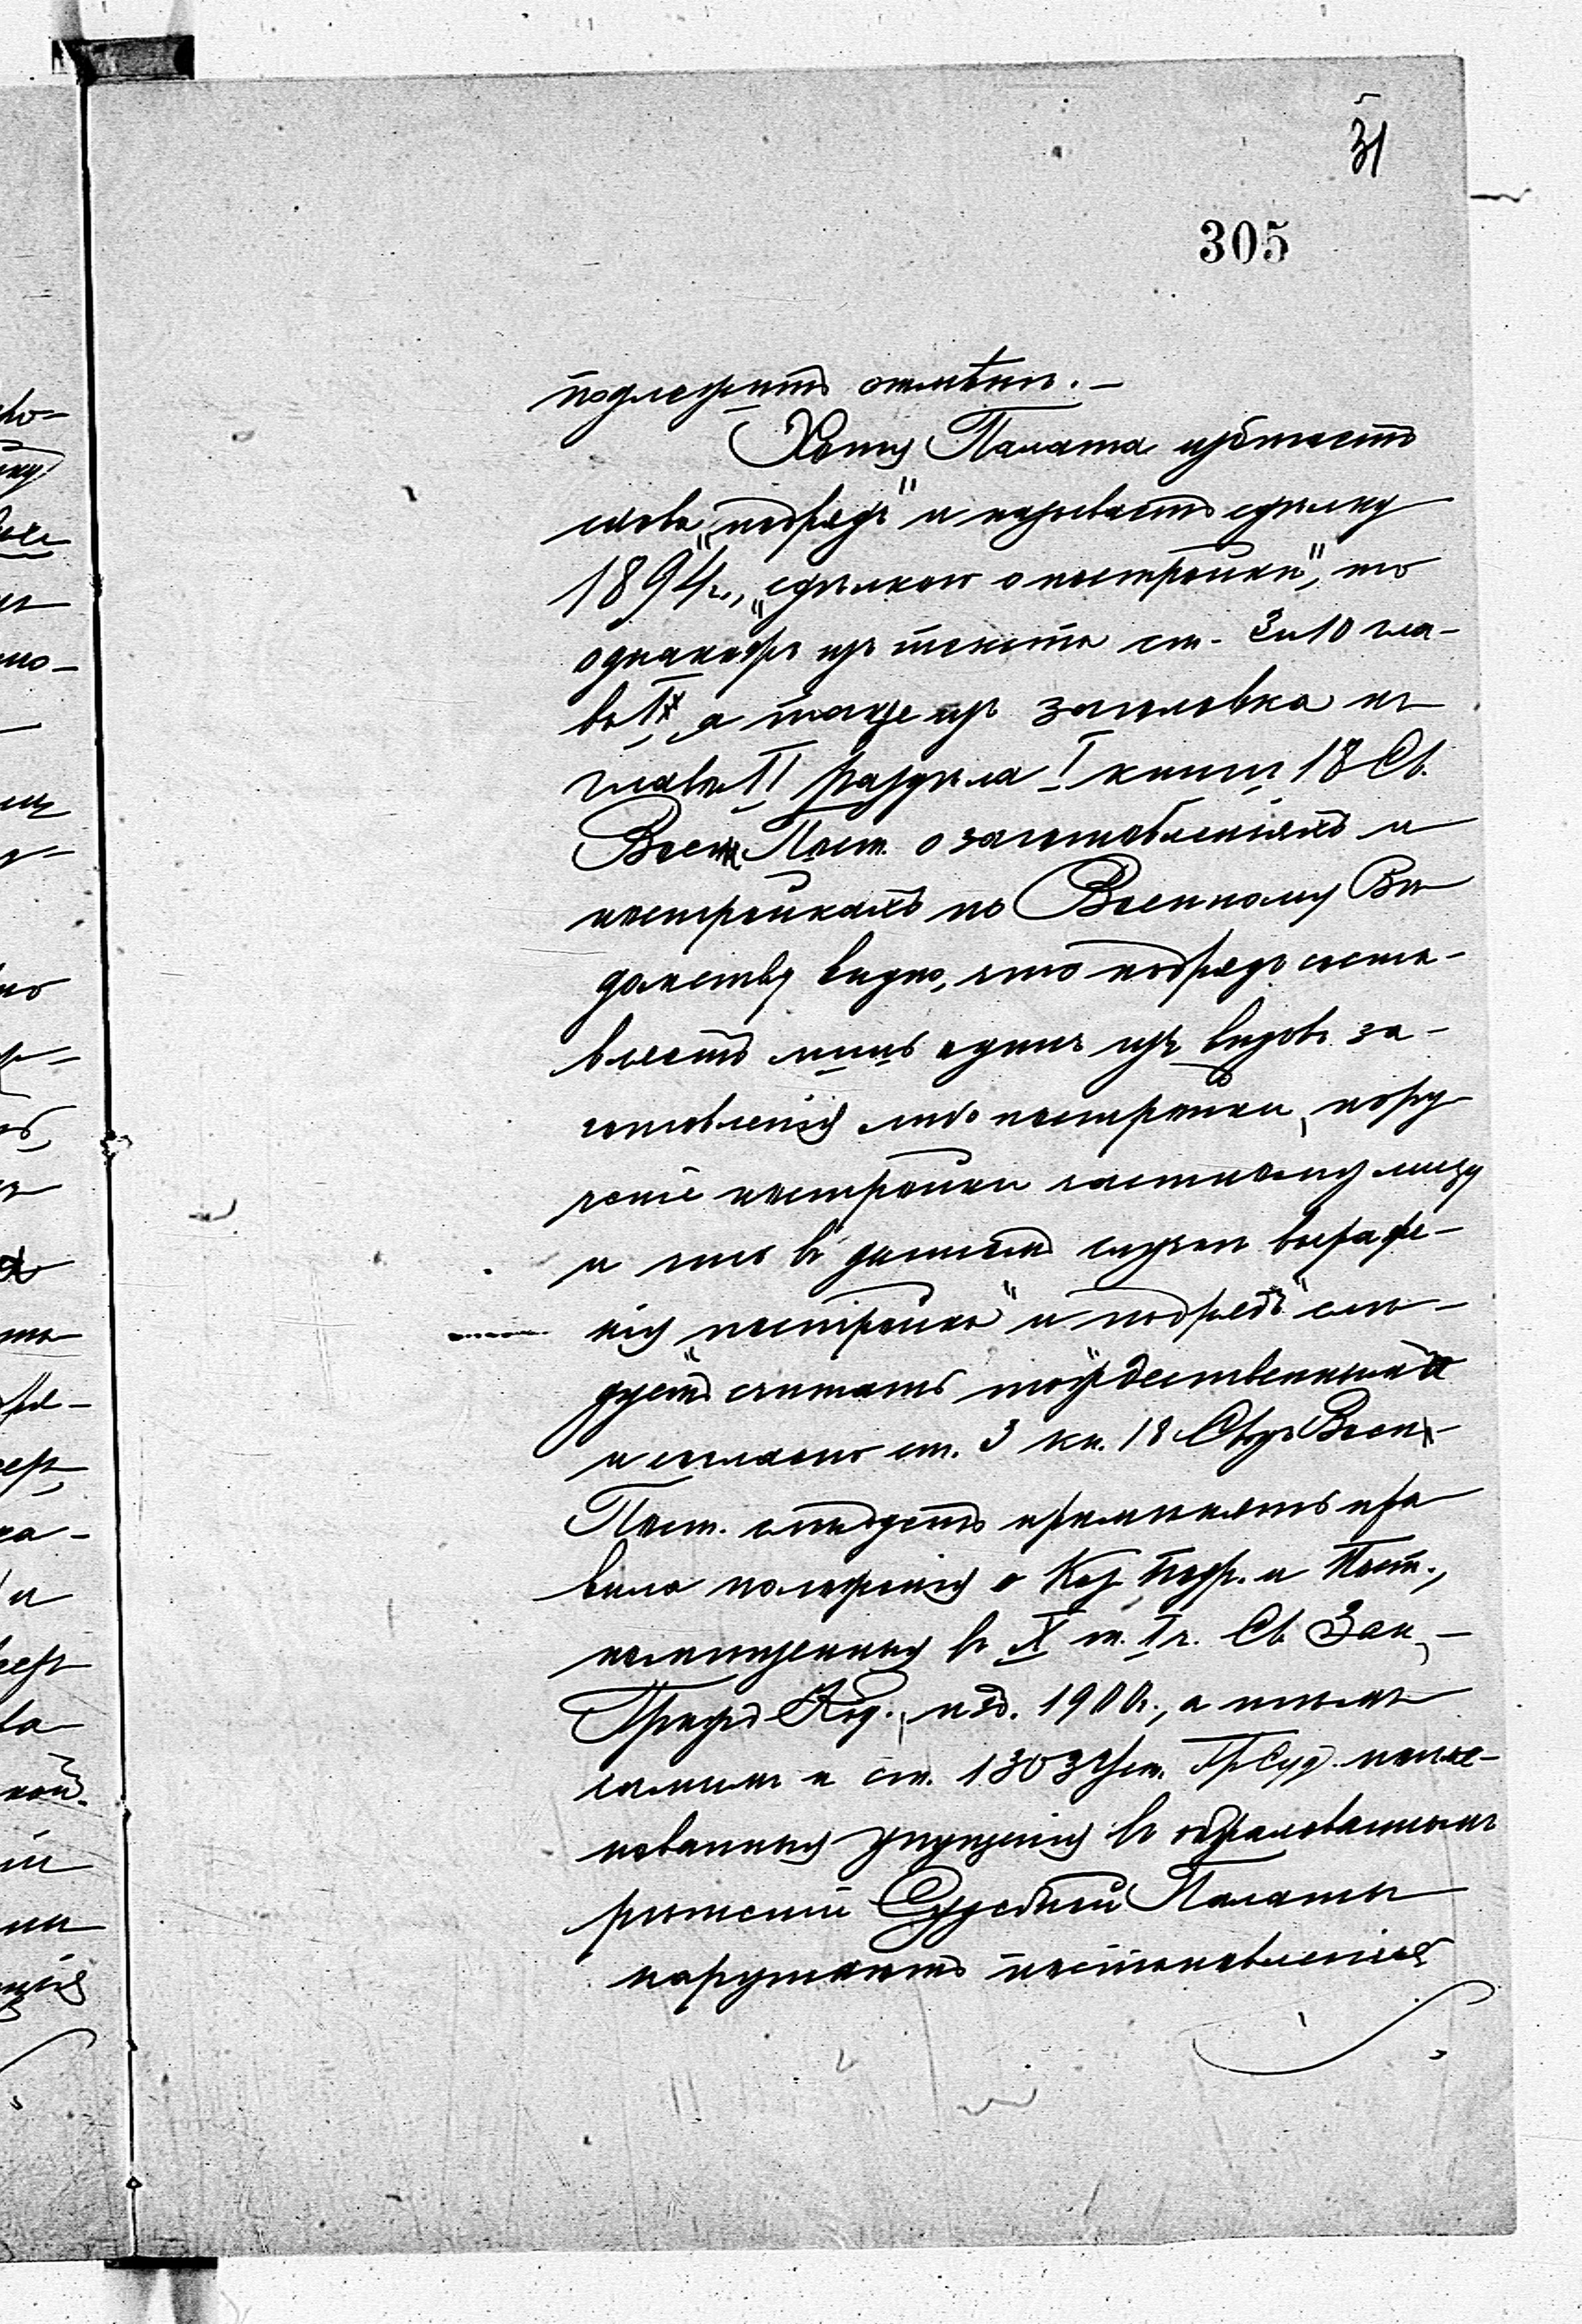 31
305
подлежитъ отмѣнѣ.—
Хотя Палата избѣгаетъ
слова „подрядъ" и называетъ сдѣлку
1894 г., „сдѣлкою о постройкѣ", но
однакожъ изъ текста ст. 3 и 10 гла-
вы II, а также изъ заголовка къ
главѣ II раздѣла I книги 18 Св.
Воен. Пост. о заготовленіяхъ и
постройкахъ по Военному Вѣ
домству видно, что подрядъ соста-
вляетъ лишь одинъ изъ видовъ за-
готовленія либо постройки, пору
ченіе постройки частному лицу
и что въ данномъ случаѣ выраже-
нія „постройка" и „подрядъ" слѣ-
дуетъ считать тождественными
и согласно ст. 3 кн. 18 Свод. Воен.
Пост. слѣдуетъ примѣнять пра
вила положенія о Каз. Подр. и Пост.,
помѣщенныя въ X т. I ч. Св. Зак.,—
Гражд. Код., изд. 1900 г., а тѣмъ
самымъ и ст. 1303 Уст. Гр. Суд. поиме-
нованныя упущенія въ обжалованномъ
рѣшеніи Судебной Палаты
нарушаютъ постановленія